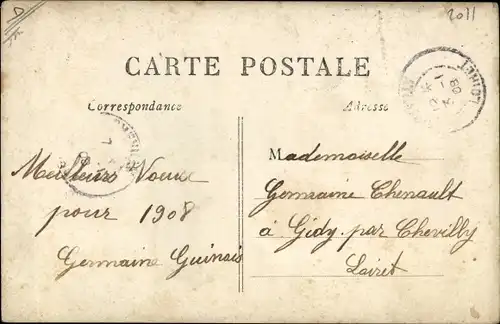 2011
CARTE POSTALE
Correspondance
Adresse
Meilleurs Voeux
pour 1908
Germaine Guinais
Mademoiselle
Germaine Chenault
à Gidy par Chevilly
Loiret